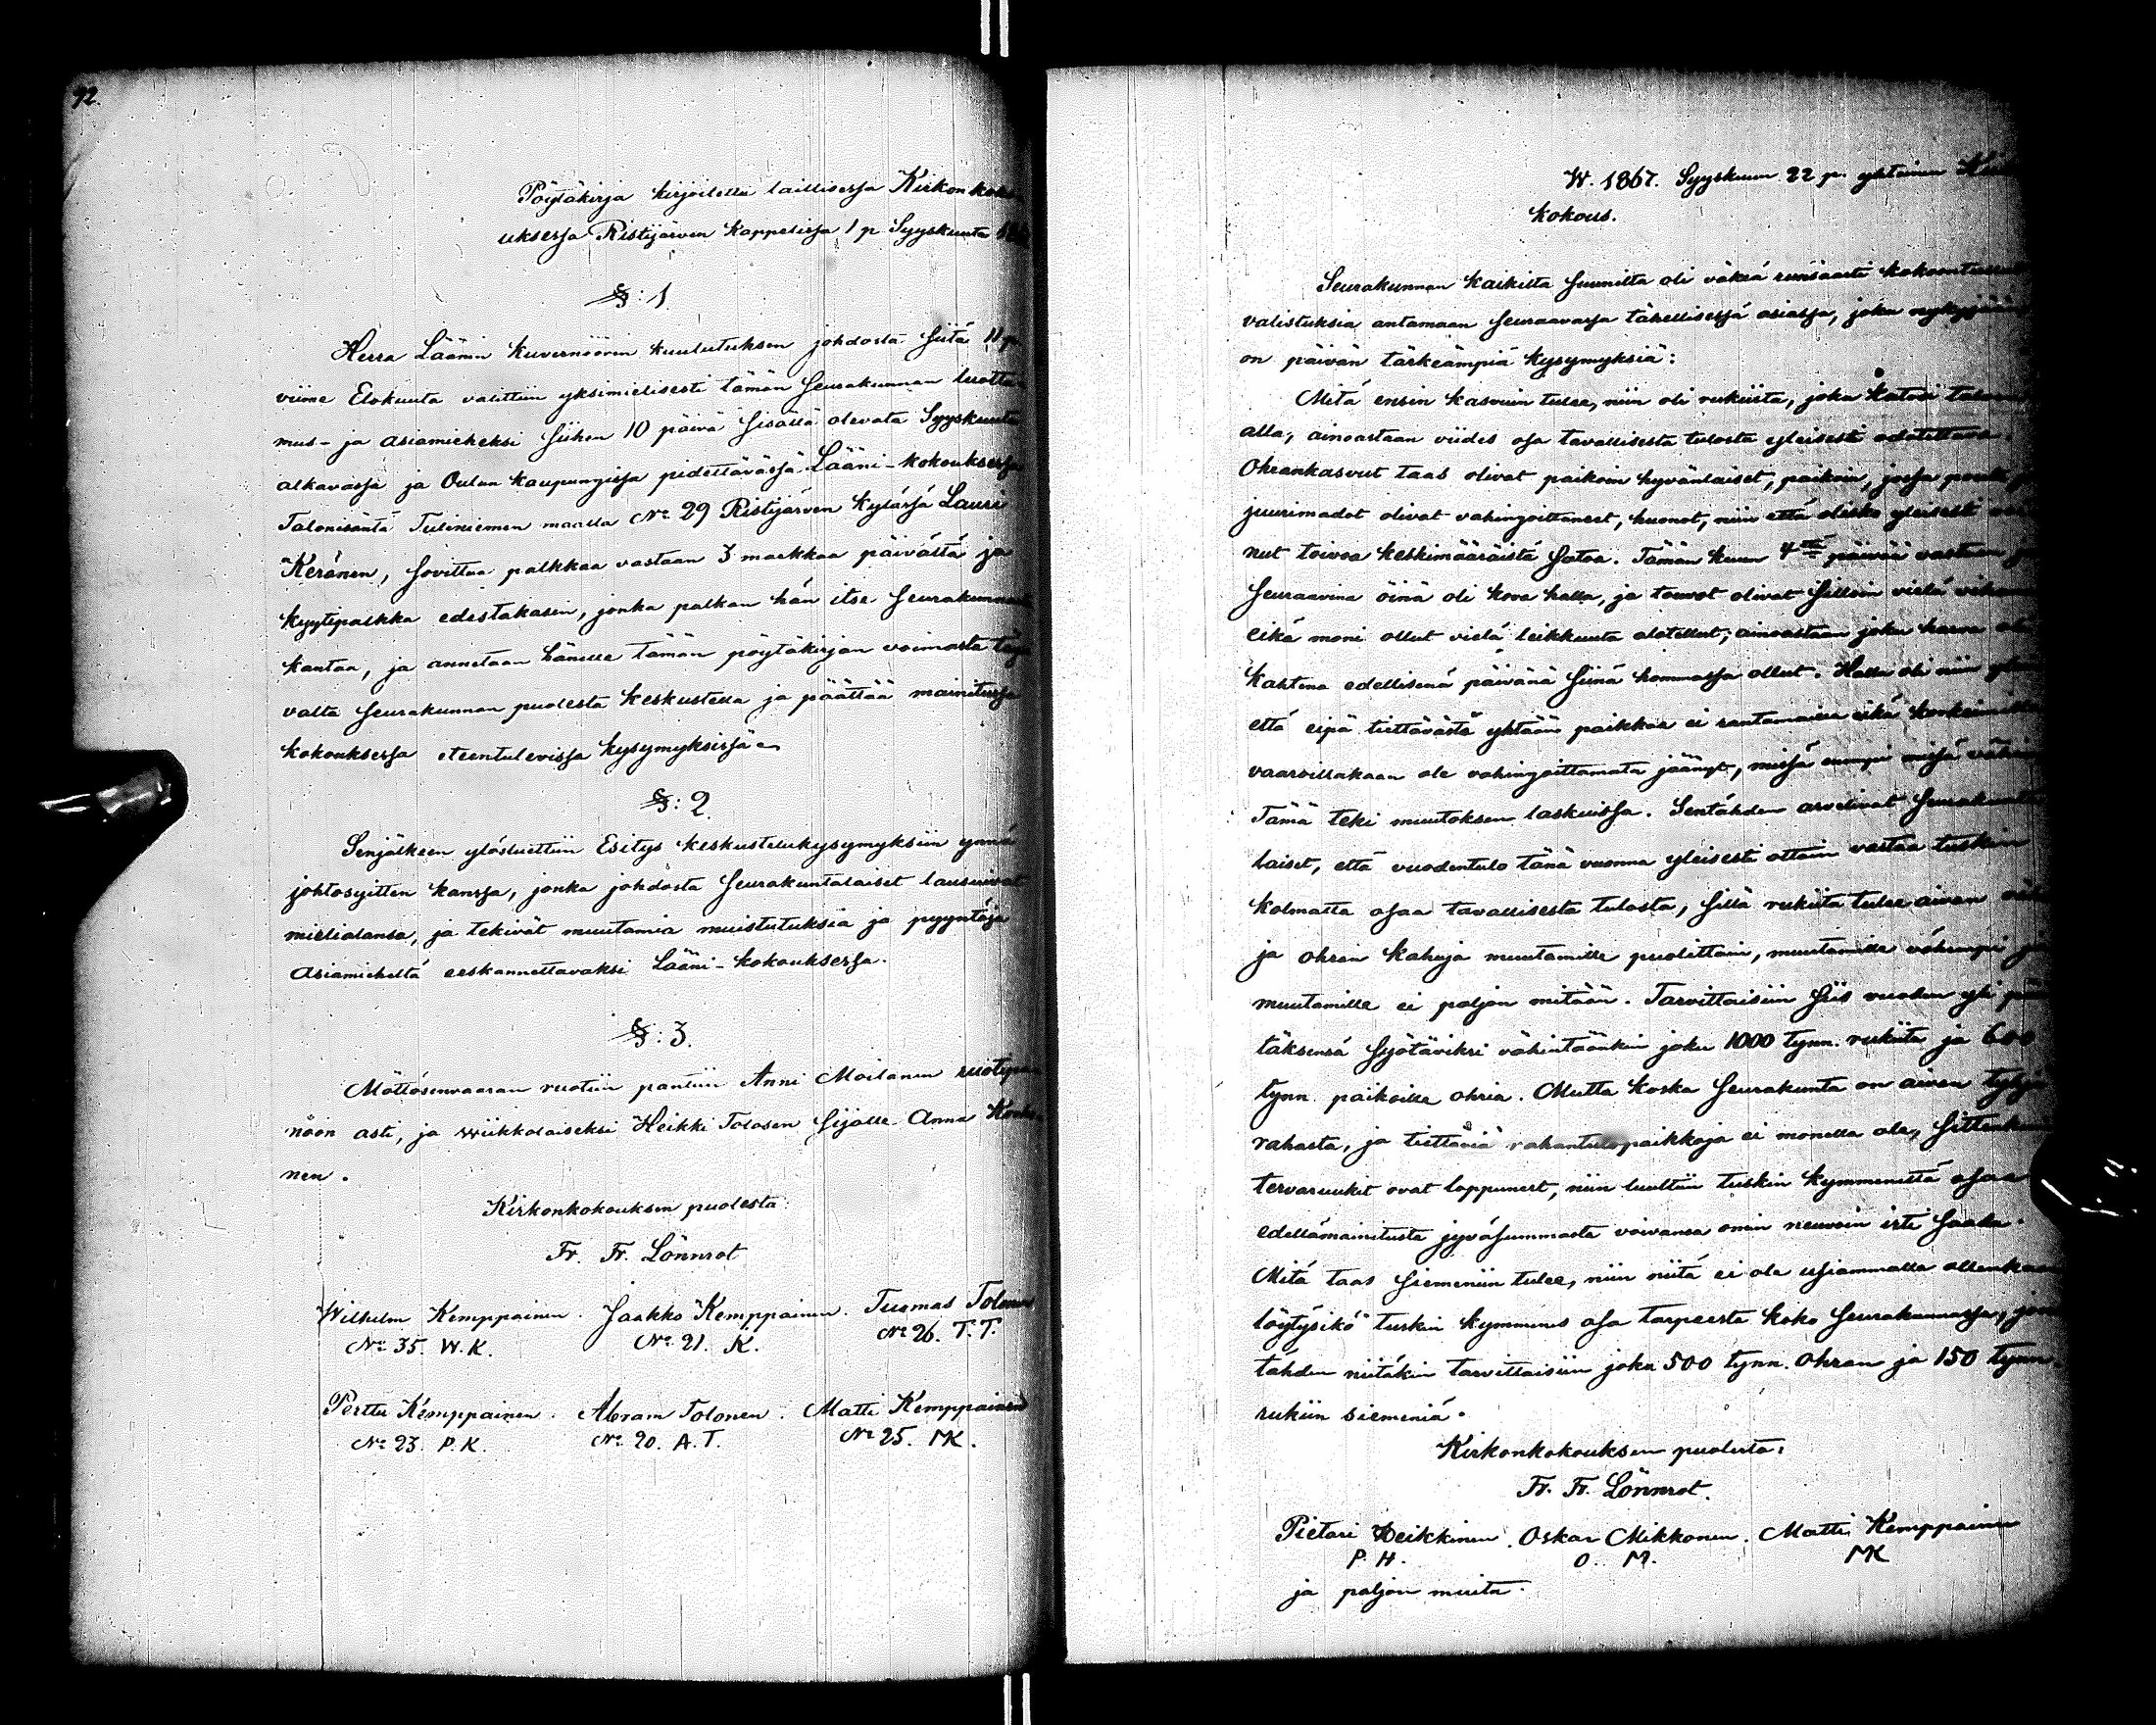 92.
Pöytäkirja kirjoitettu laillisessa Kirkonkoko
uksessa Ristijärven Kappelissa 1 p Syyskuuta
§: 1
Herra Läänin Kuvernöörin kuulutuksen johdosta siitä 11 p.
viime Elokuuta valittiin yksimielisesti tämän seurakunnan luotta
mus- ja asiamieheksi siihen 10 päivä sisällä olevata Syyskuuta
alkavassa ja Oulun kaupungissa pidettävässä Lääni-kokouksessa
Talonisäntä Tuliniemen maalla No 29 Ristijärven kylässä Lauri
Keränen, sovittua palkkaa vastaan 3 markkaa päivältä ja
kyytipalkka edestakasin, jonka palkan hän itse seurakunnalta
kantaa, ja annetaan hänelle tämän pöytäkirjan voimasta täysi
valta seurakunnan puolesta keskustella ja päättää mainitussa
kokouksessa eteentulevissa kysymyksissä
§: 2.
Senjälkeen ylösluettiin Esitys keskustelukysymyksiin ynnä
johtosyitten kanssa, jonka johdosta seurakuntalaiset lausuivat
mielialansa, ja tekivät muutamia muistutuksia ja pyyntöjä
asiamieheltä eeskannettavaksi Lääni-kokouksessa.
§: 3.
Möttösenvaaran ruotiin pantiin Anni Moilanen
nöön asti, ja wiikkolaiseksi Heikki Tolosen sijalle Anna
nen.
Kirkonkokouksen puolesta:
Fr. Fr. Lönnrot
Wilhelm Kemppainen. Jaakko Kemppainen. Tuomas Tolonen
No 35. W.K. No 21. K. No 26. T.T.
Perttu Kemppainen. Abram Tolonen. Matti Kemppainen
No 23. P.K. No 20. A.T. No 25. MK.
W. 1867. Syyskuun 22 p. yhteinen
kokous.
Seurakunnan kaikilta suunnilta oli väkeä runsaasti
valistuksia antamaan seuraavassa tähellisessä asiassa, joka
on päivän tärkeämpiä kysymyksiä:
Mitä ensin kasvuin tulee, niin oli rukiista, joka katosi
alla, ainoastaan viides osa tavallisesta tulosta yleisesti odotettava.
Ohrankasvut taas olivat paikoin hyvänlaiset, paikoin, jossa
juurimadot olivat vahingoittaneet, huonot, niin että olisko yleisesti
nut toivoa keskimääräistä satoa. Tämän kuun 4 päivää vastaan
seuraavina öinä oli kova halla, ja touvot olivat silloin vielä
eikä moni ollut vielä leikkuuta alotellut; ainoastaan joku harva
kahtena edellisenä päivänä siinä hommassa ollut. Halla oli niin
että eipä tiettävästi yhtään paikkaa ei rantamailla eikä
vaaroillakaan ole vahingoittamata jäänyt, missä enempi missä
Tämä teki muutoksen laskuissa. Sentähden arvelivat
laiset, että vuodentulo tänä vuonna yleisesti ottain vastaa tuskin
kolmatta osaa tavallisesta tulosta, sillä rukiita tulee aivan
ja ohran kahuja muutamille puolittain, muutamille vähempi
muutamille ei paljon mitään. Tarvittaisiin siis vuoden yli
täksensä syötäviksi vähintäänkin joku 1000 tynn. rukiita ja 600
tynn. paikoilla ohria. Mutta koska seurakunta on aivan
rahasta, ja tiettäviä rahantulopaikkoja ei monella ole,
tervaruukit ovat loppuneet, niin luultiin tuskin kymmenettä osaa
edellämainitusta jyväsummasta voivansa omin neuvoin irti saada.
Mitä taas siemeniin tulee, niin niitä ei ole usiammalla
löytysikö tuskin kymmenes osa tarpeesta koko seurakunnassa,
tähden niitäkin tarvittaisiin joku 500 tynn. Ohran ja 150 tynn.
rukiin siemeniä.
Kirkonkokouksen puolesta:
Fr. Fr. Lönnrot.
Pietari Heikkinen. Oskar Mikkonen. Matti Kemppainen
P. H. O. M. MK
ja paljon muita.